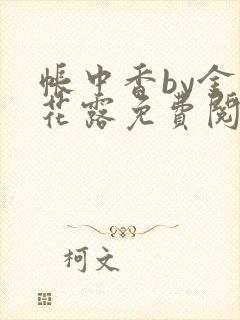 帐中香by金
花露免費閱
柯文